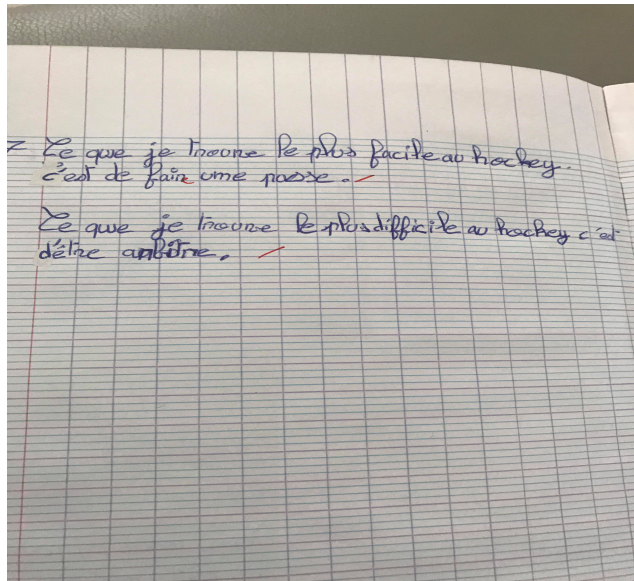 Ce que je trouve le plus facile au hockey.
c'est de faire une passe.
Ce que je trouve le plus difficile au hockey c'est
d'être arbitre.